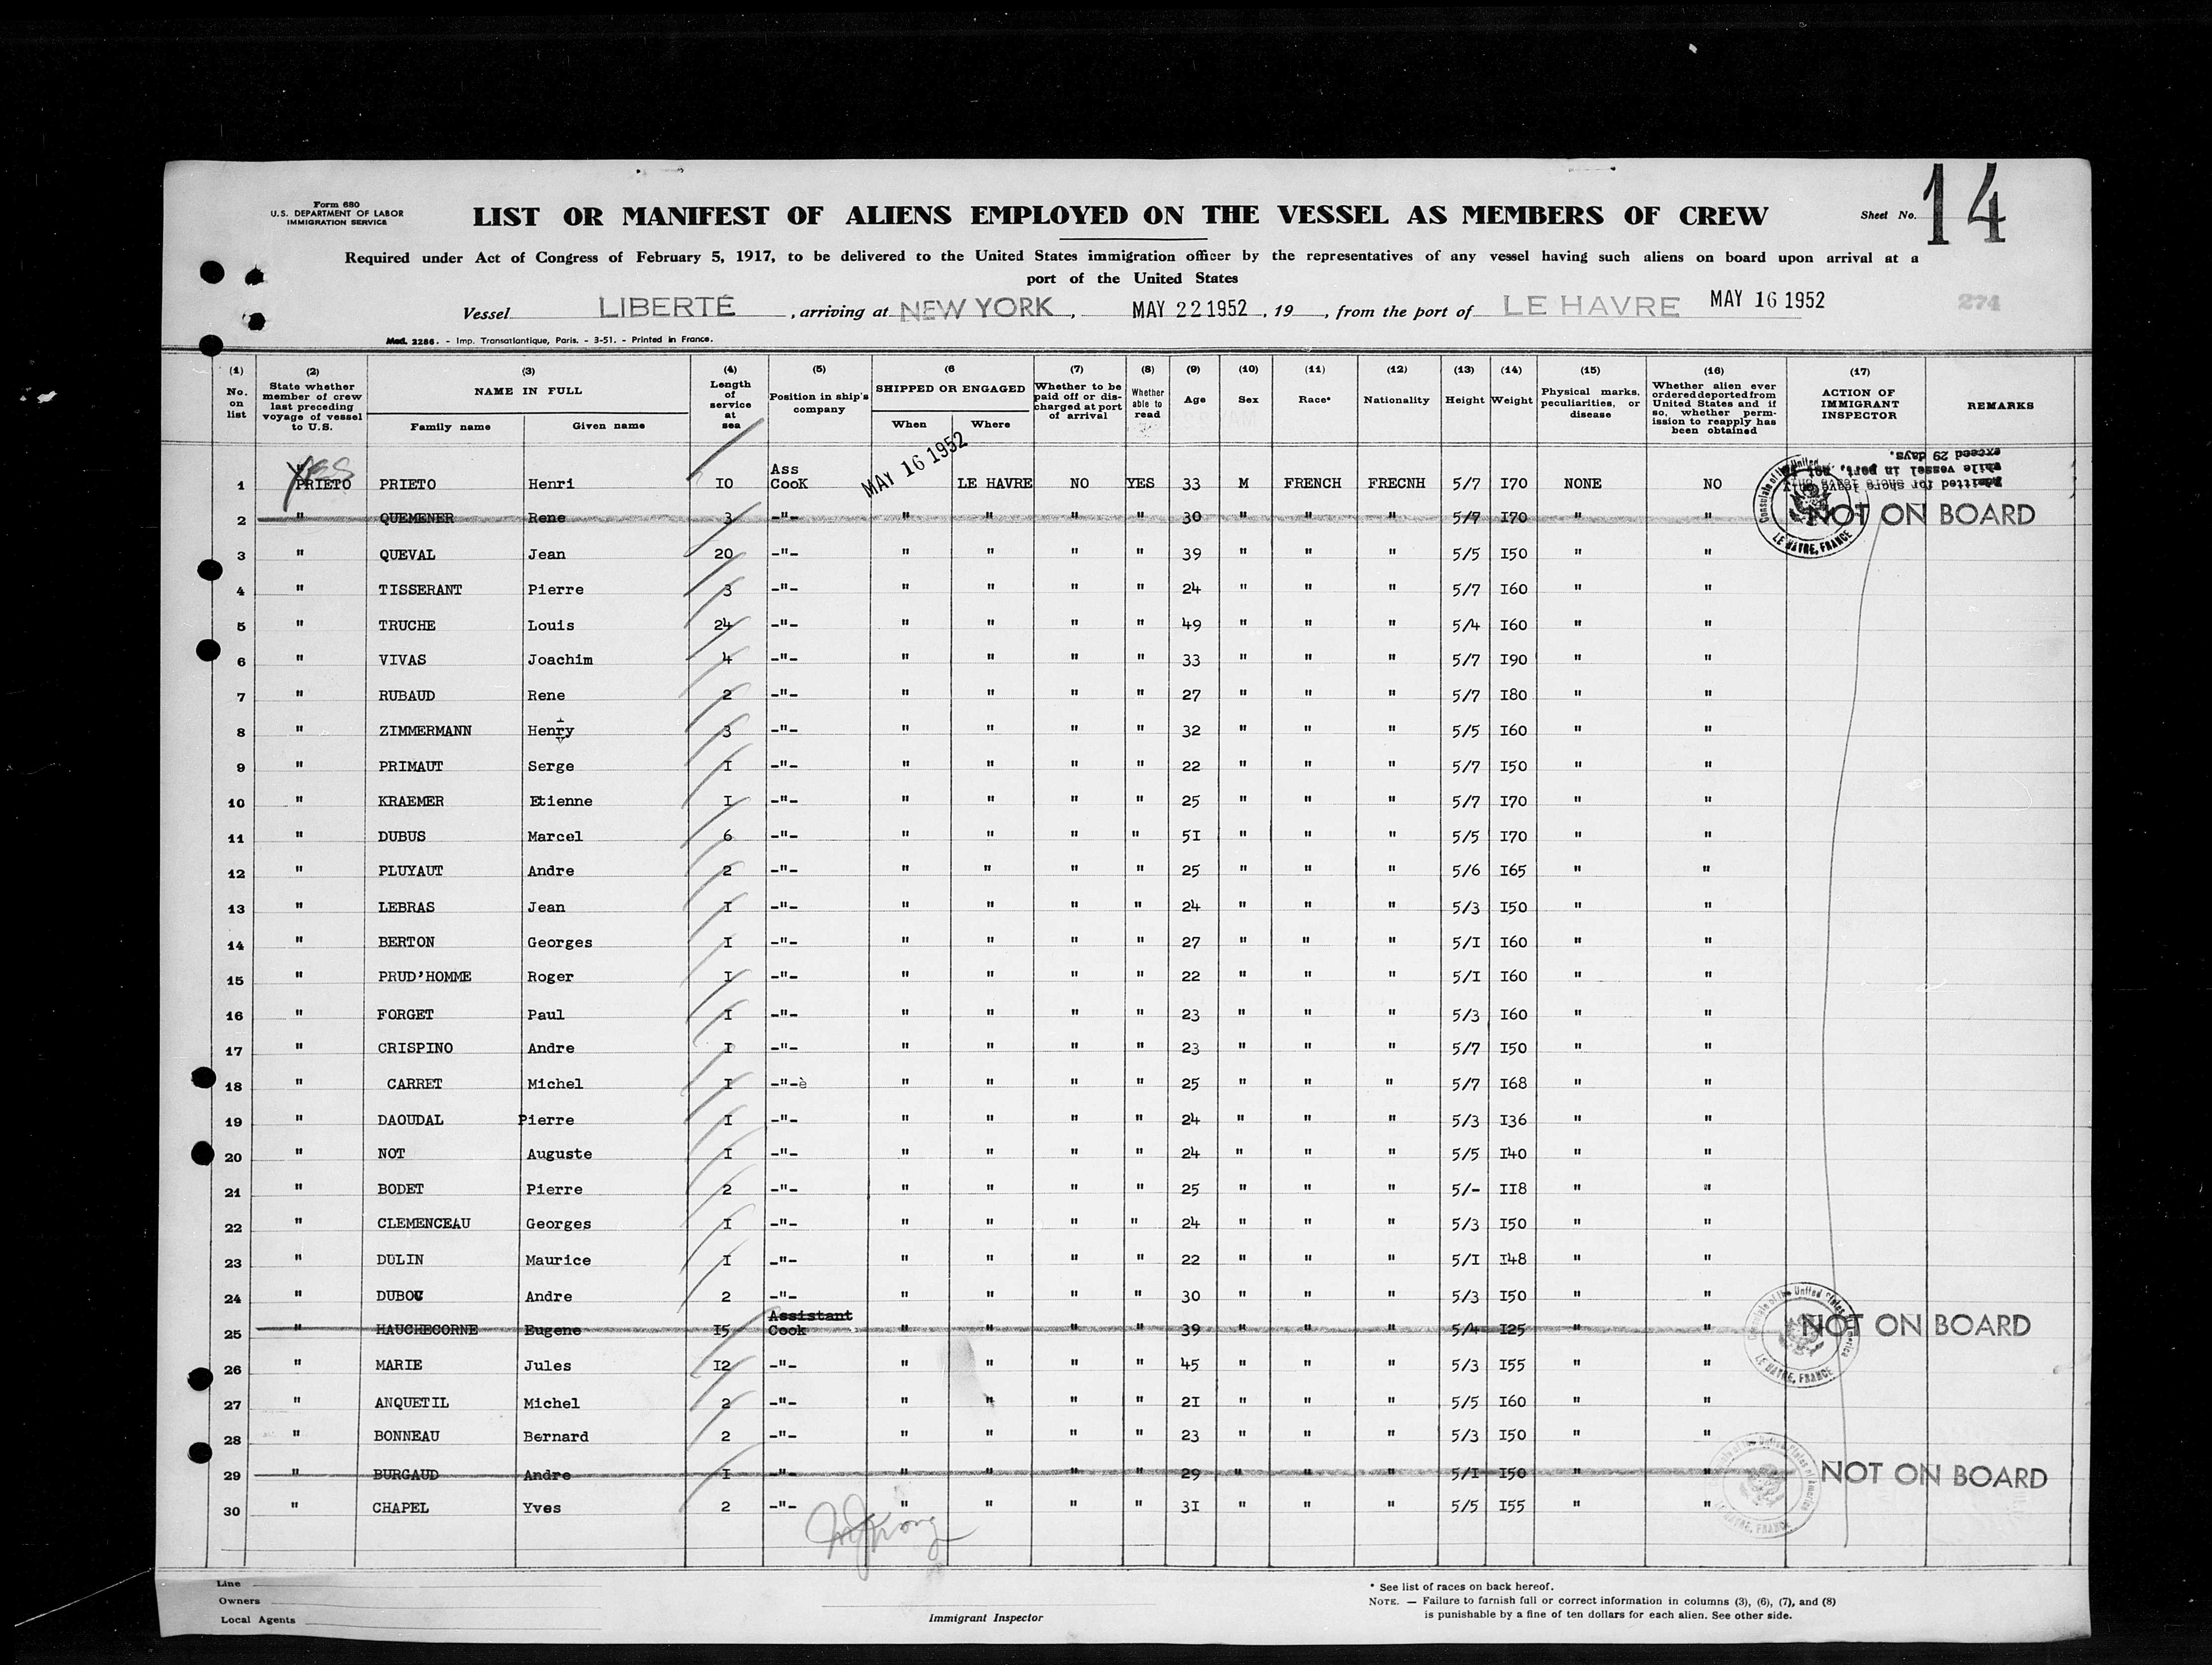 Form 680
U.S. DEPARTMENT OF LABOR
IMMIGRATION SERVICE
LIST OR MANIFEST OF ALIENS EMPLOYED ON THE VESSEL AS MEMBERS OF CREW
Sheet No. 14
Required under Act of Congress of February 5, 1917, to be delivered to the United States immigration officer by the representatives of any vessel having such aliens on board upon arrival at a
port of the United States
Vessel LIBERTÉ , arriving at NEW YORK , MAY 22 1952 , 19 , from the port of LE HAVRE MAY 16 1952
274
Mod. 2286. - Imp. Transatlantique, Paris. - 3-51. - Printed in France.
(1) No. on list (2) State whether member of crew last preceding voyage of vessel to U.S. (3) NAME IN FULL Family name Given name (4) Length of service at sea (5) Position in ship's company (6 SHIPPED OR ENGAGED When Where (7) Whether to be paid off or discharged at port of arrival (8) Whether able to read (9) Age (10) Sex (11) Race* (12) Nationality (13) Height (14) Weight (15) Physical marks, peculiarities, or disease (16) Whether alien ever ordered deported from United States and if so, whether permission to reapply has been obtained (17) ACTION OF IMMIGRANT INSPECTOR REMARKS
Admitted for shore leave only while vessel in port, not to exceed 29 days.
Consulate of the United
LE HAVRE, FRANCE
1 Yes PRIETO PRIETO Henri I0 Ass CooK MAY 16 1952 LE HAVRE NO YES 33 M FRENCH FRECNH 5/7 I70 NONE NO
2 " QUEMENER Rene 3 -"- " " " " 30 " " " 5/7 I70 " " NOT ON BOARD
3 " QUEVAL Jean 20 -"- " " " " 39 " " " 5/5 I50 " "
4 " TISSERANT Pierre 3 -"- " " " " 24 " " " 5/7 I60 " "
5 " TRUCHE Louis 24 -"- " " " " 49 " " " 5/4 I60 " "
6 " VIVAS Joachim 4 -"- " " " " 33 " " " 5/7 I90 " "
7 " RUBAUD Rene 2 -"- " " " " 27 " " " 5/7 I80 " "
8 " ZIMMERMANN Henry 3 -"- " " " " 32 " " " 5/5 I60 " "
9 " PRIMAUT Serge I -"- " " " " 22 " " " 5/7 I50 " "
10 " KRAEMER Etienne I -"- " " " " 25 " " " 5/7 I70 " "
11 " DUBUS Marcel 6 -"- " " " " 5I " " " 5/5 I70 " "
12 " PLUYAUT Andre 2 -"- " " " " 25 " " " 5/6 I65 " "
13 " LEBRAS Jean I -"- " " " " 24 " " " 5/3 I50 " "
14 " BERTON Georges I -"- " " " " 27 " " " 5/I I60 " "
15 " PRUD'HOMME Roger I -"- " " " " 22 " " " 5/I I60 " "
16 " FORGET Paul I -"- " " " " 23 " " " 5/3 I60 " "
17 " CRISPINO Andre I -"- " " " " 23 " " " 5/7 I50 " "
18 " CARRET Michel I -"-è " " " " 25 " " " 5/7 I68 " "
19 " DAOUDAL Pierre I -"- " " " " 24 " " " 5/3 I36 " "
20 " NOT Auguste I -"- " " " " 24 " " " 5/5 I40 " "
21 " BODET Pierre 2 -"- " " " " 25 " " " 5/- II8 " "
22 " CLEMENCEAU Georges I -"- " " " " 24 " " " 5/3 I50 " "
23 " DULIN Maurice I -"- " " " " 22 " " " 5/I I48 " "
24 " DUBOC Andre 2 -"- " " " " 30 " " " 5/3 I50 " "
25 " HAUCHECORNE Eugene I5 Assistant Cook " " " " 39 " " " 5/4 I25 " " NOT ON BOARD
Consulate of the United States of America
LE HAVRE, FRANCE
26 " MARIE Jules I2 -"- " " " " 45 " " " 5/3 I55 " "
27 " ANQUETIL Michel 2 -"- " " " " 2I " " " 5/5 I60 " "
28 " BONNEAU Bernard 2 -"- " " " " 23 " " " 5/3 I50 " "
29 " BURGAUD Andre I -"- " " " " 29 " " " 5/I I50 " " NOT ON BOARD
Consulate of the United States of America
LE HAVRE, FRANCE
30 " CHAPEL Yves 2 -"- " " " " 3I " " " 5/5 I55 " "
Line
Owners
Local Agents
Immigrant Inspector
* See list of races on back hereof.
NOTE. — Failure to furnish full or correct information in columns (3), (6), (7), and (8)
is punishable by a fine of ten dollars for each alien. See other side.